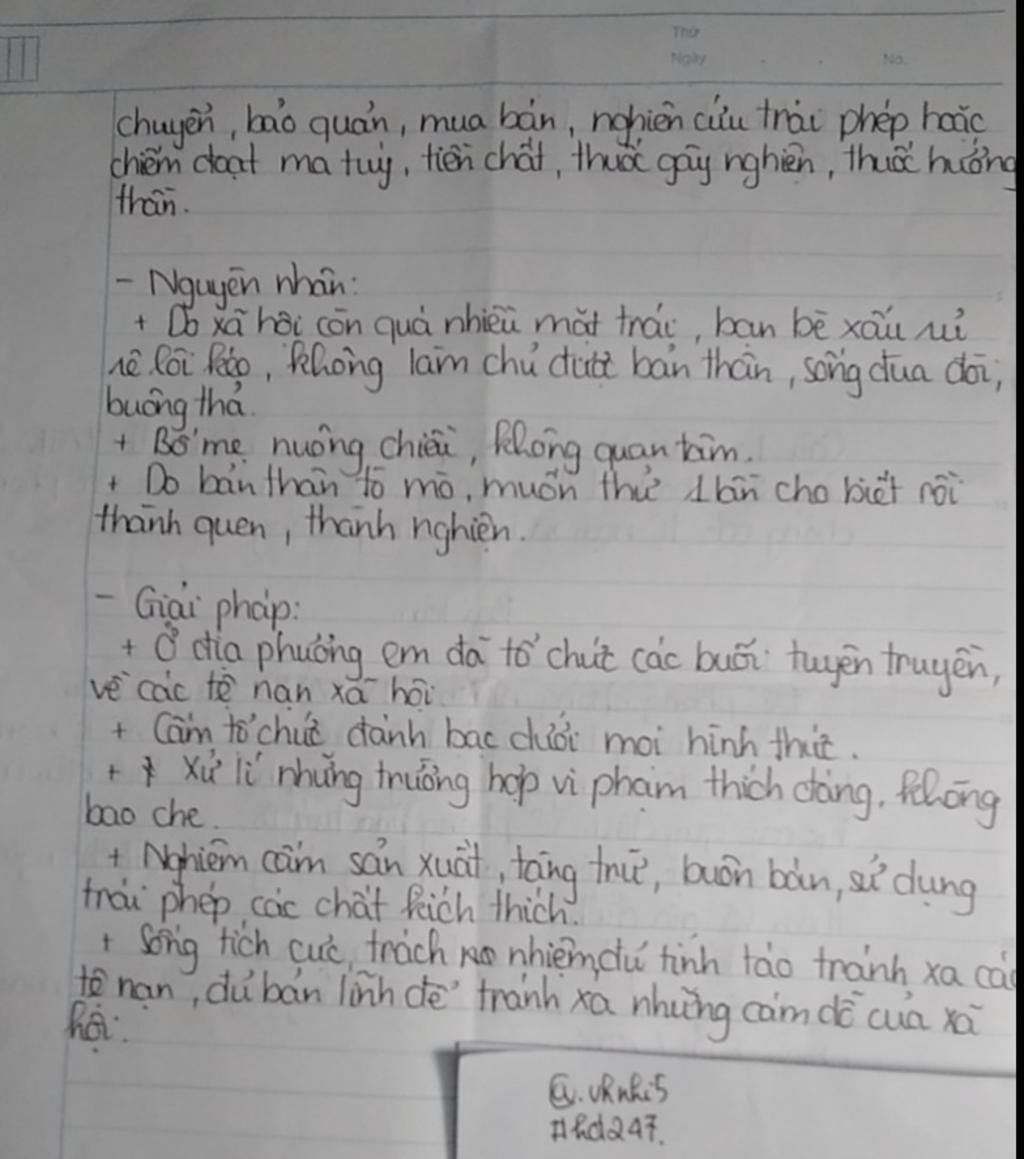 Thứ
Ngày No.
chuyển, bảo quản, mua bán, nghiên cứu trái phép hoặc
chiếm đoạt ma túy, tiền chất, thuốc gây nghiện, thuốc hướng
thần.
- Nguyên nhân:
+ Do xã hội còn quá nhiều mặt trái, bạn bè xấu rủ
rê lôi kéo, không làm chủ được bản thân, sống đua đòi,
buông thả.
+ Bố mẹ nuông chiều, không quan tâm.
+ Do bản thân tò mò, muốn thử 1 lần cho biết rồi
thành quen, thành nghiện.
- Giải pháp:
+ Ở địa phương em đã tổ chức các buổi tuyên truyền,
về các tệ nạn xã hội
+ Cấm tổ chức đánh bạc dưới mọi hình thức.
+ Xử lí những trường hợp vi phạm thích đáng, không
bao che.
+ Nghiêm cấm sản xuất, tàng trữ, buôn bán, sử dụng
trái phép các chất kích thích.
+ Sống tích cực, trách nhiệm, đủ tỉnh táo tránh xa các
tệ nạn, đủ bản lĩnh để tránh xa những cám dỗ của xã
hội.
@.vknhi5
#hd247.